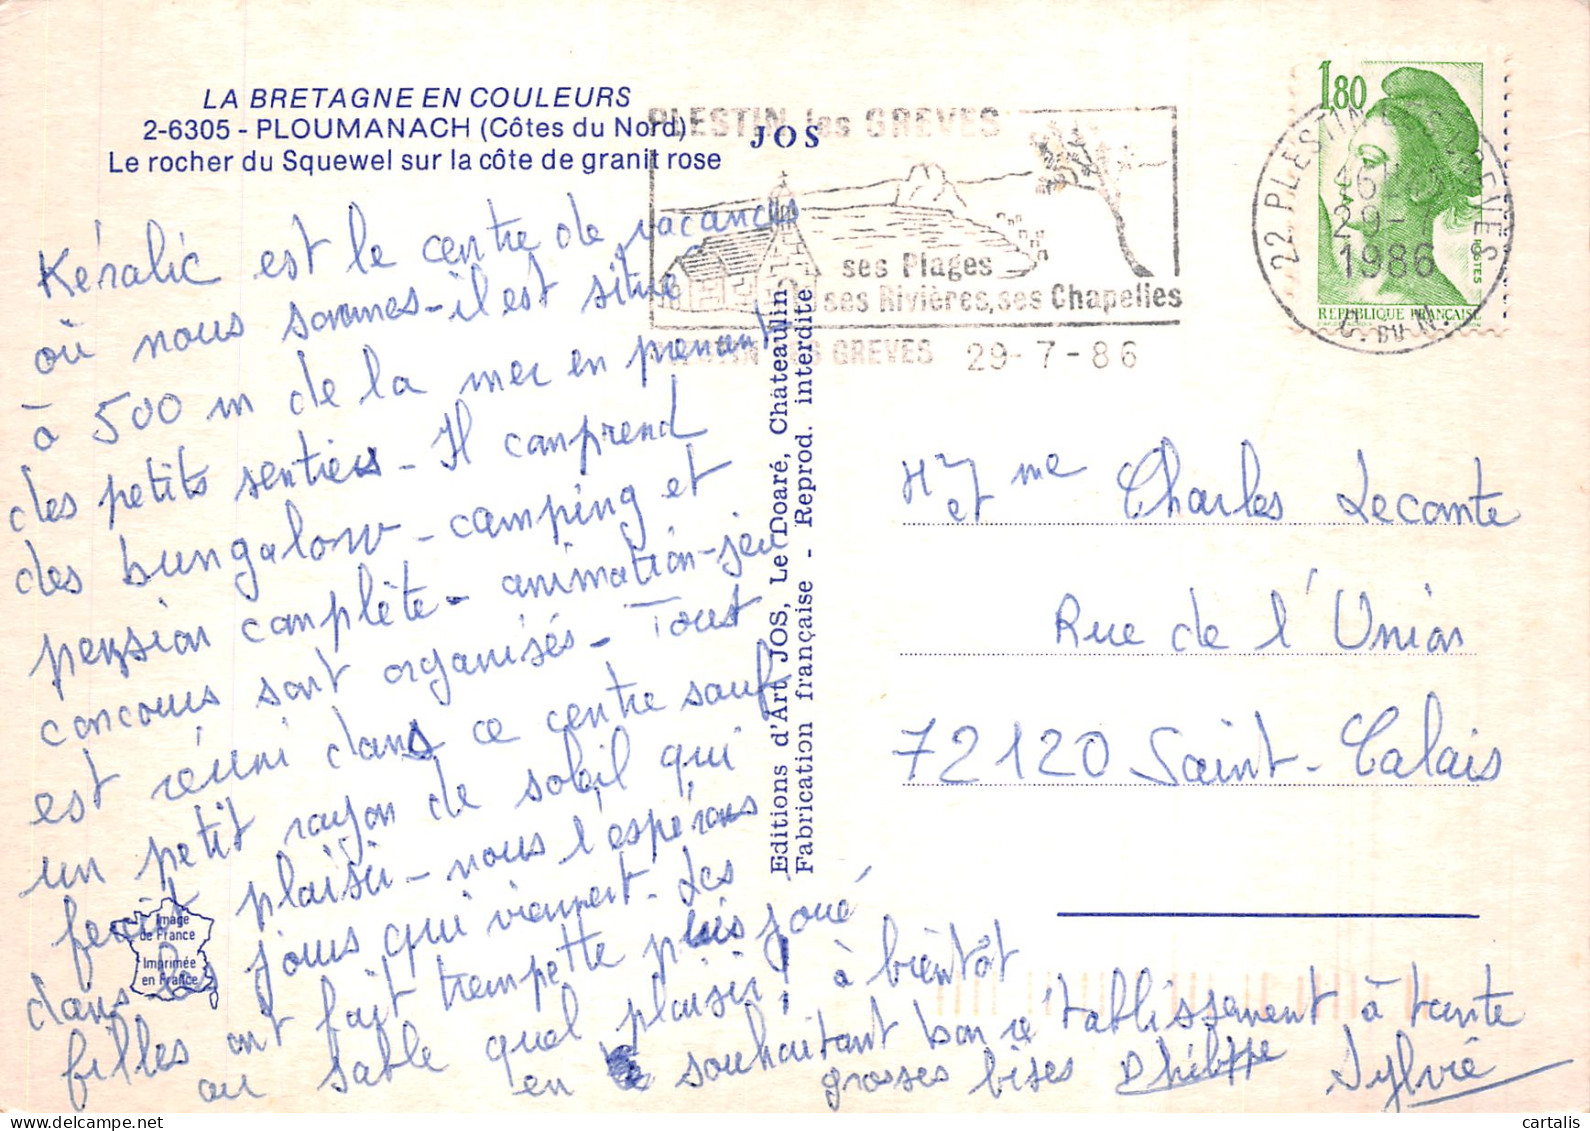 LA BRETAGNE EN COULEURS
2-6305 - PLOUMANACH (Côtes du Nord)
Le rocher du Squewel sur la côte de granit rose
JOS
PLESTIN les GREVES
ses Plages
ses Rivières, ses Chapelles
PLESTIN LES GREVES 29-7-86
22 PLESTIN LES GREVES
29-7
1986
C. DU N.
1,80
POSTES
REPUBLIQUE FRANÇAISE
Kéralic est le centre de vacances
où nous sommes - il est situé
à 500 m de la mer en prenant
des petits sentiers - Il comprend
des bungalow - camping et
pension complète - animation - jeu
concours sont organisés - Tout
est réuni dans ce centre sauf
un petit rayon de soleil qui
ferait plaisir - nous l'espérons
dans les jours qui viennent. Les
filles ont fait trempette puis joué
au sable quel plaisir ! à bientôt
en souhaitant bon rétablissement à tante
grosses bises Philippe Sylvie
Mr et Mme Charles Lecomte
Rue de l'Union
72120 Saint-Calais
Editions d'Art JOS, Le Doaré, Châteaulin
Fabrication française - Reprod. interdite
Image
de France
Imprimée
en France
cartalis.com